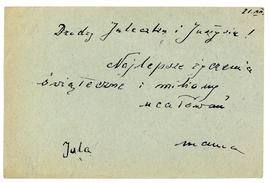 21.XII
Drodzy Juleczku i Justysiu!
Najlepsze życzenia
świąteczne i miliony
ucałowań
Jula mama